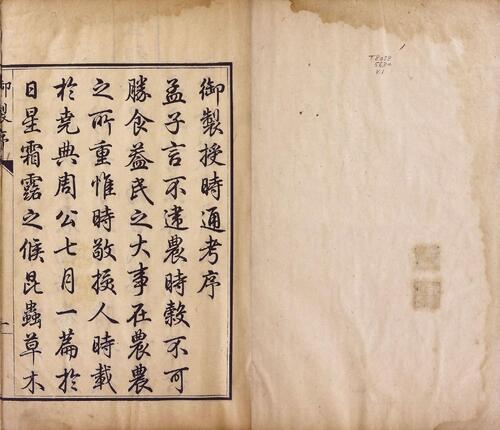 御製授時通考序
孟子言不違農時穀不可
勝食益民之大事在農農
之所重惟時敬授人時載
於堯典周公七月一篇於
日星霜露之候昆蟲草木
御製序
一
T 8028
V.1